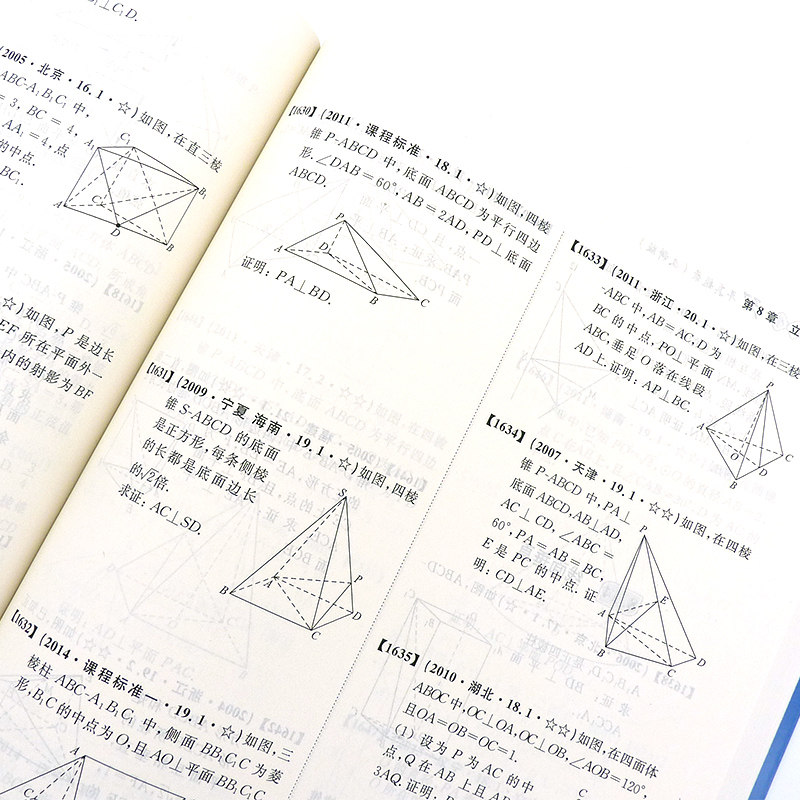 ⊥C₁D.
(2005·北京·16.1·☆)如图,在直三棱
ABC-A₁B₁C₁ 中,
= 3, BC = 4,
AA₁=4,点
的中点.
BC₁.
A₁
C₁
B₁
C
A
D
B
☆)如图, P 是边长
EF 所在平面外一
内的射影为 BF
【1630】(2011·课程标准·18.1·☆)如图,四棱
锥 P-ABCD 中,底面 ABCD 为平行四边
形,∠DAB=60°,AB=2AD,PD⊥底面
ABCD.
P
A
D
B
C
证明: PA⊥BD.
【1631】(2009·宁夏 海南·19.1·☆)如图,四棱
锥 S-ABCD 的底面
是正方形,每条侧棱
的长都是底面边长
的√2倍.
求证: AC⊥SD.
S
A
P
B
D
C
【1632】(2014·课程标准一·19.1·☆)如图,三
棱柱 ABC-A₁B₁C₁ 中,侧面 BB₁C₁C 为菱
形,B₁C 的中点为 O,且 AO⊥平面 BB₁C₁C.
A
第 8 章 立
【1633】(2011·浙江·20.1·☆)如图,在三棱
-ABC 中,AB=AC,D 为
BC 的中点, PO⊥平面
ABC,垂足 O 落在线段
AD 上.证明: AP⊥BC.
P
A
C
O
D
B
【1634】(2007·天津·19.1·☆☆)如图,在四棱
锥 P-ABCD 中, PA⊥
底面 ABCD,AB⊥AD,
AC⊥CD, ∠ABC=
60°,PA=AB=BC,
E 是 PC 的中点.证
明: CD⊥AE.
P
E
A
B
D
C
【1635】(2010·湖北·18.1·☆☆)如图,在四面体
ABOC 中,OC⊥OA,OC⊥OB,∠AOB=120°,
且OA=OB=OC=1.
(1) 设为 P 为 AC 的中
点, Q 在 AB 上且 AB
3AQ.证明:
C